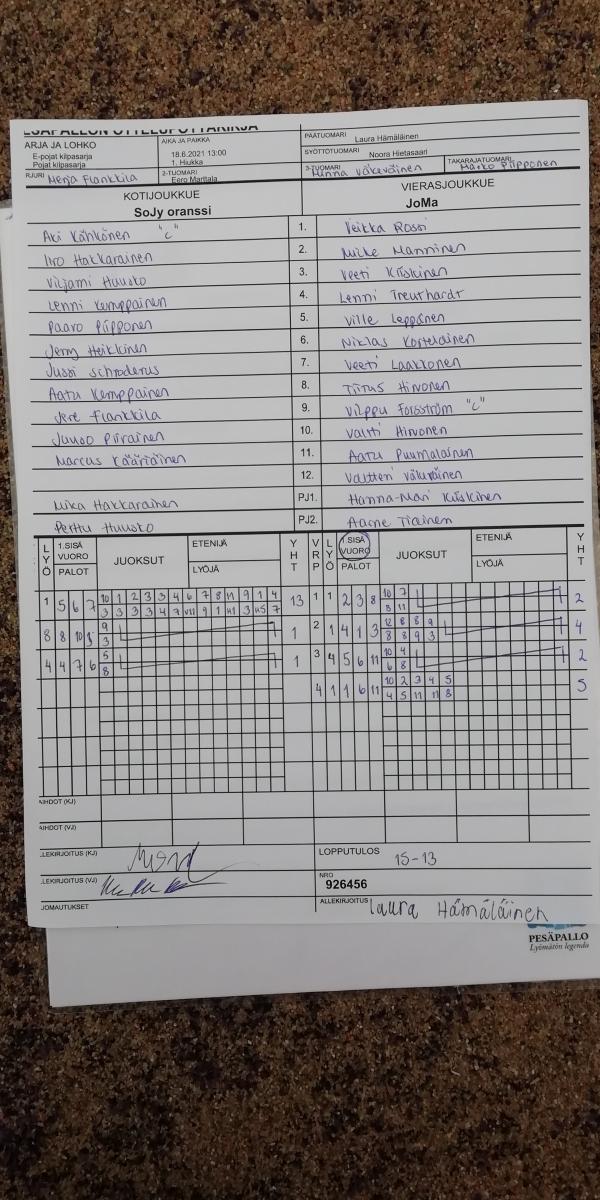 PESÄPALLON OTTELUPÖYTÄKIRJA
ARJA JA LOHKO
E-pojat kilpasarja
Pojat kilpasarja
AIKA JA PAIKKA
18.6.2021 13:00
1. Hiukka
PÄÄTUOMARI Laura Hämäläinen
SYÖTTÖTUOMARI Noora Hietasaari
RJURI Merja Flankkila
2-TUOMARI Eero Marttala
3-TUOMARI Minna Väkeväinen
TAKARAJATUOMARI Marko Piipponen
KOTIJOUKKUE
SoJy oranssi
VIERASJOUKKUE
JoMa
Aki Kähkönen "C" 1. Veikka Rossi
Iiro Hakkarainen 2. Miike Manninen
Viljami Huusko 3. Veeti Kiiskinen
Lenni Kemppainen 4. Lenni Treuthardt
Paavo Piipponen 5. Ville Leppänen
Jemy Heikkinen 6. Niklas Kortelainen
Jussi Schroderus 7. Veeti Laakkonen
Aatu Kemppainen 8. Tiitus Hirvonen
Jere Flankkila 9. Vilppu Forsström "C"
Juuso Piirainen 10. Valtti Hirvonen
Marcus Kääriäinen 11. Aatu Puumalainen
12. Valtteri Väkeväinen
Mika Hakkarainen PJ1. Hanna-Mari Kiiskinen
Perttu Huusko PJ2. Aarne Tiainen
LYÖ 1.SISÄ VUORO PALOT JUOKSUT ETENIJÄ LYÖJÄ YHT VRP LYÖ 1.SISÄ VUORO PALOT JUOKSUT ETENIJÄ LYÖJÄ YHT
1 5 6 7 10 1 2 3 3 4 6 7 8 11 9 1 4 13 1 1 2 3 8 10 7 2
3 3 3 3 4 7 VII 9 1 11 3 5 7 8 11
8 8 10 9 1 2 1 4 1 3 12 8 8 9 4
3 8 8 9 3
4 4 7 6 5 1 3 9 5 6 11 10 4 2
8 6 8
4 1 1 6 11 10 2 3 4 5 5
4 5 11 11 8
AIHDOT (KJ)
AIHDOT (VJ)
LEKIRJOITUS (KJ)
LOPPUTULOS 15-13
LEKIRJOITUS (VJ)
NRO
926456
JOMAUTUKSET
ALLEKIRJOITUS Laura Hämäläinen
PESÄPALLO
Lyömätön legenda